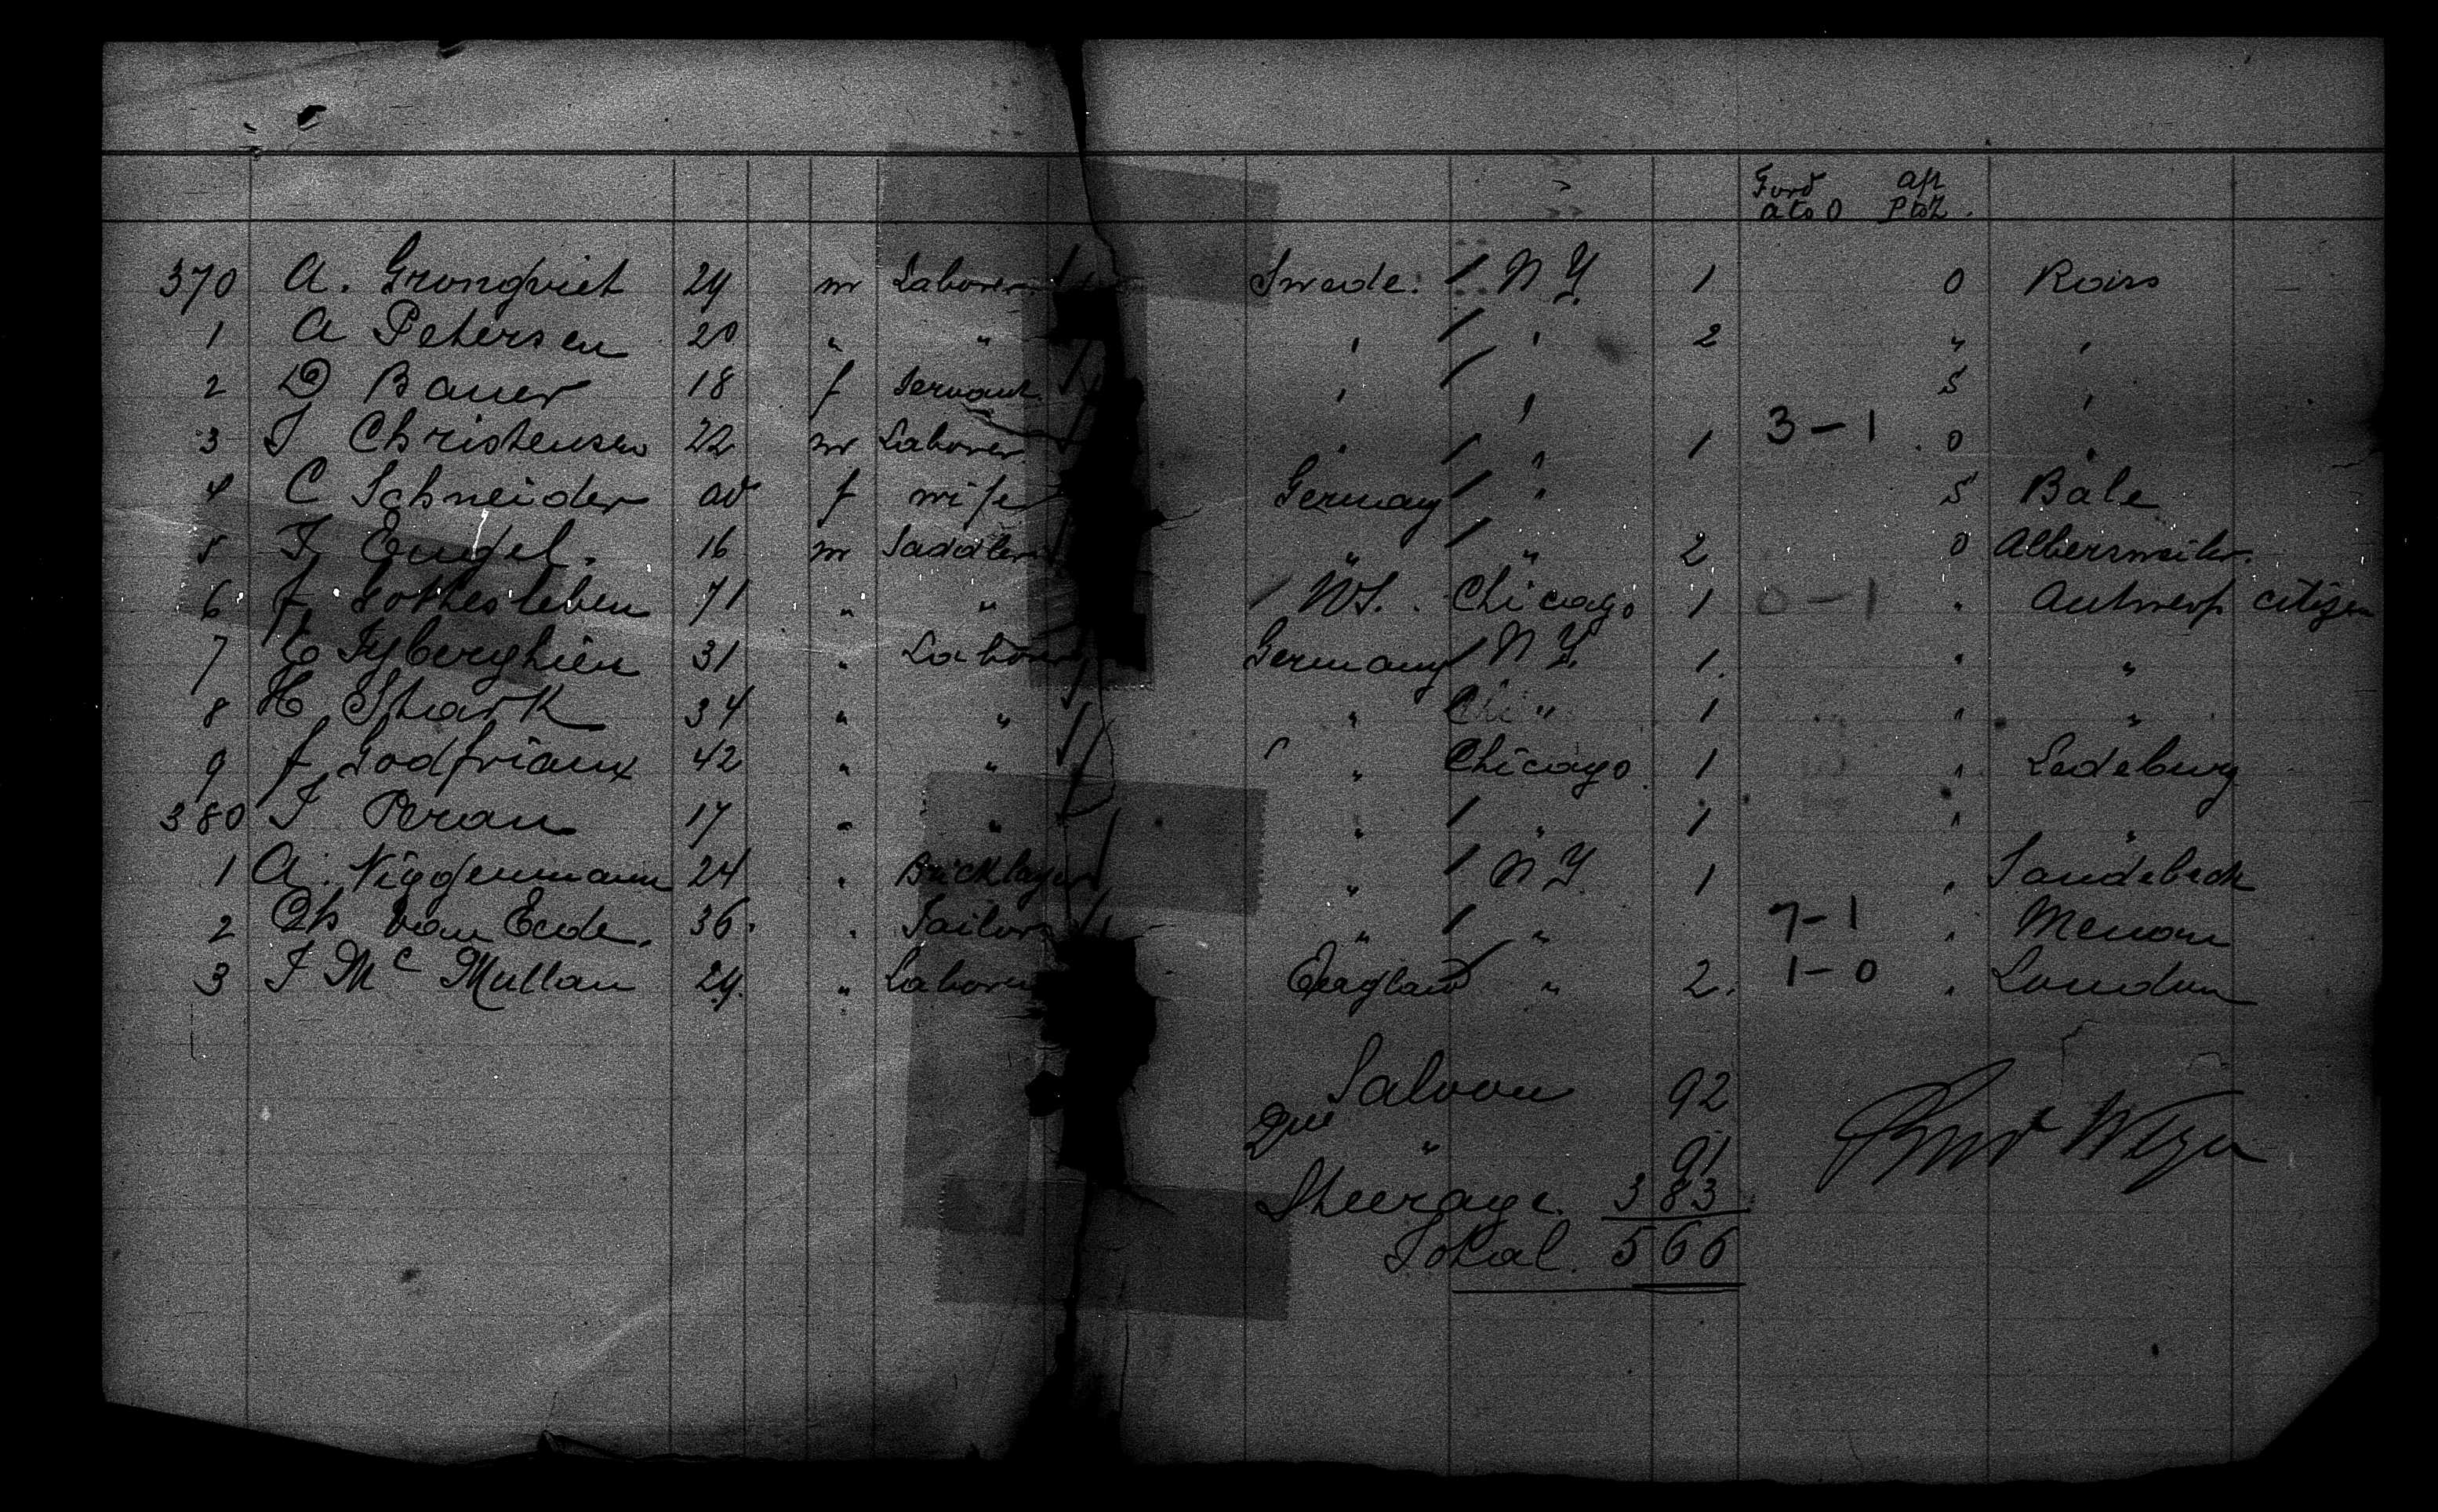 Forw aft
a to O P to Z.
370 A. Gronqvist 24 m Laborer Swede. / N Y 1 O Roiss
1 A Petersen 20 " " " / " 2 " "
2 D Bauer 18 f Servant " / " S "
3 J Christensen 22 m Laborer " / " 1 3-1 O "
4 C Schneider ad f wife Germany / " S Bale
5 J Engel. 16 m Saddler " / " 2 O Albersweiler.
6 J Gothesleben 71 " " / US. Chicago 1 0-1 " Antwerp citizen
7 E Tyberghien 31 " Laborer Germany / N Y. 1. " "
8 H Stark 34 " " " Chi " 1 " "
9 J Godfriaux 42 " " " Chicago 1 " Ledeburg
380 J Peran 17 " " " / " 1 " "
1 A. Niggenmann 24 " Bricklayer " / N Y. 1 " Sandebeck
2 Ch van Eede. 36. " Sailor " / " 7-1 " Menen
3 J McMullan 24. " Laborer England / " 2. 1-0 " London
Saloon 92
2nd " 91
Steerage. 383
Total. 566